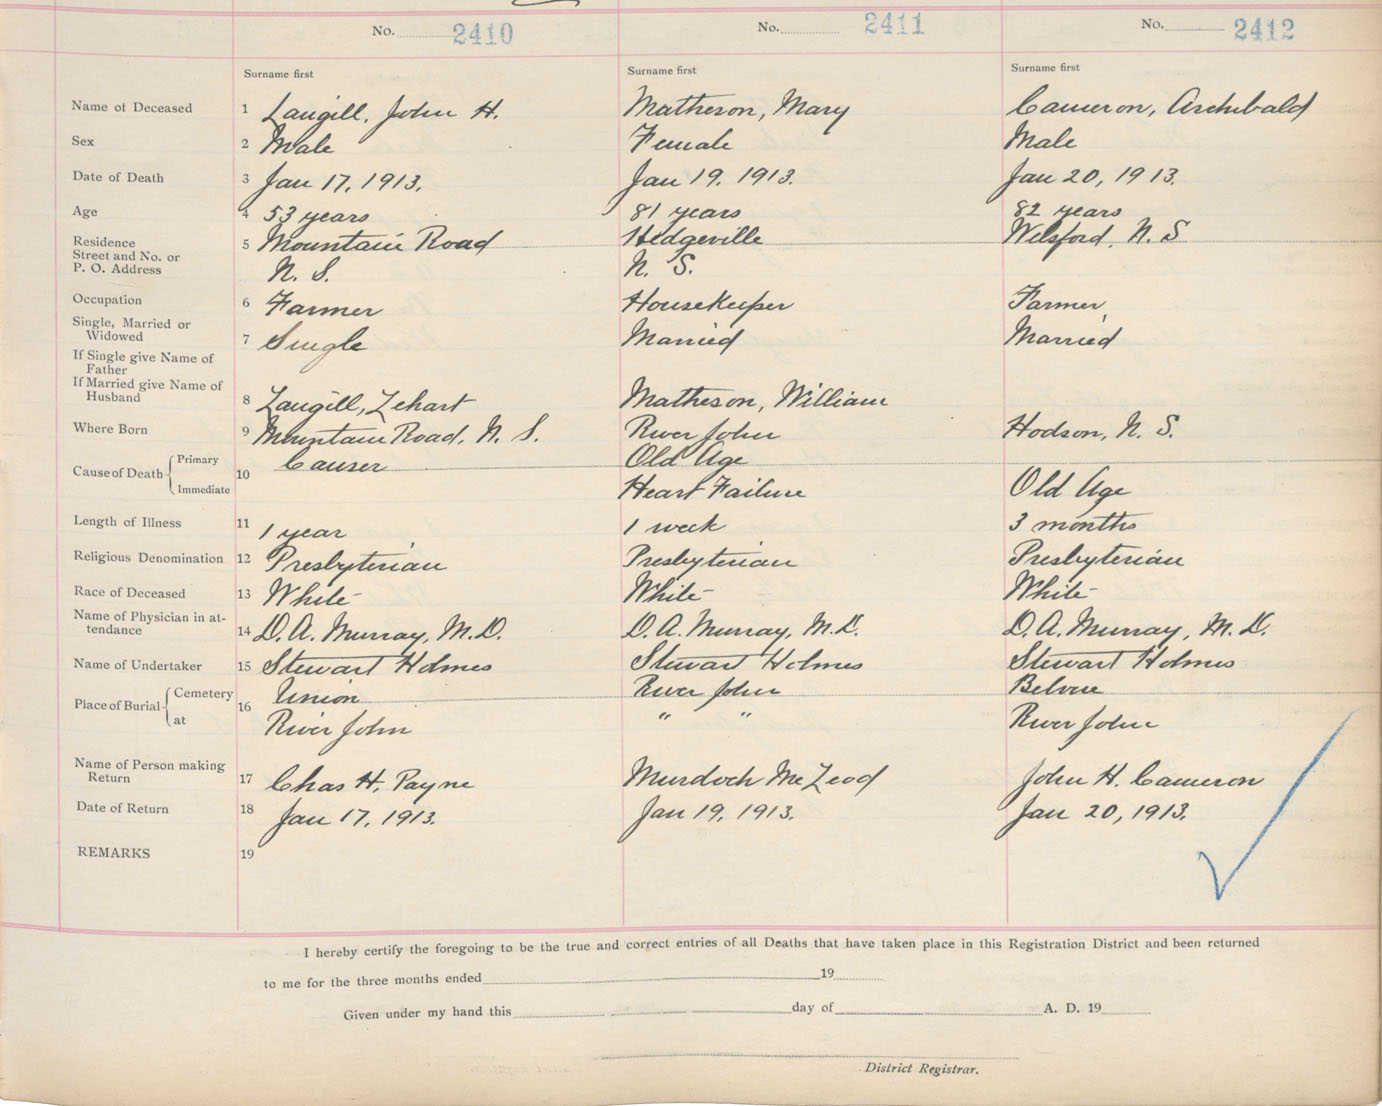 No. 2410 No. 2411 No. 2412
Surname first Surname first Surname first
Name of Deceased 1 Langill, John H. Matheson, Mary Cameron, Archibald
Sex 2 Male Female Male
Date of Death 3 Jan 17, 1913. Jan 19, 1913. Jan 20, 1913.
Age 4 53 years 81 years 82 years
Residence 5 Mountain Road Hedgeville Welsford, N. S
Street and No. or
P. O. Address N. S. N. S.
Occupation 6 Farmer Housekeeper Farmer
Single, Married or
Widowed 7 Single Married Married
If Single give Name of
Father
If Married give Name of
Husband 8 Langill, Zehart Matheson, William
Where Born 9 Mountain Road, N. S. River John Hodson, N. S.
Cause of Death Primary 10 Cancer Old Age
Immediate Heart Failure Old Age
Length of Illness 11 1 year 1 week 3 months
Religious Denomination 12 Presbyterian Presbyterian Presbyterian
Race of Deceased 13 White White White
Name of Physician in at-
tendance 14 D. A. Murray, M. D. D. A. Murray, M. D. D. A. Murray, M. D.
Name of Undertaker 15 Stewart Holmes Stewart Holmes Stewart Holmes
Place of Burial Cemetery 16 Union River John
at River John " " River John
Name of Person making
Return 17 Chas H. Payne Murdoch McLeod John H. Cameron
Date of Return 18 Jan 17, 1913. Jan 19, 1913. Jan 20, 1913.
REMARKS 19
I hereby certify the foregoing to be the true and correct entries of all Deaths that have taken place in this Registration District and been returned
to me for the three months ended 19
Given under my hand this day of A. D. 19
District Registrar.